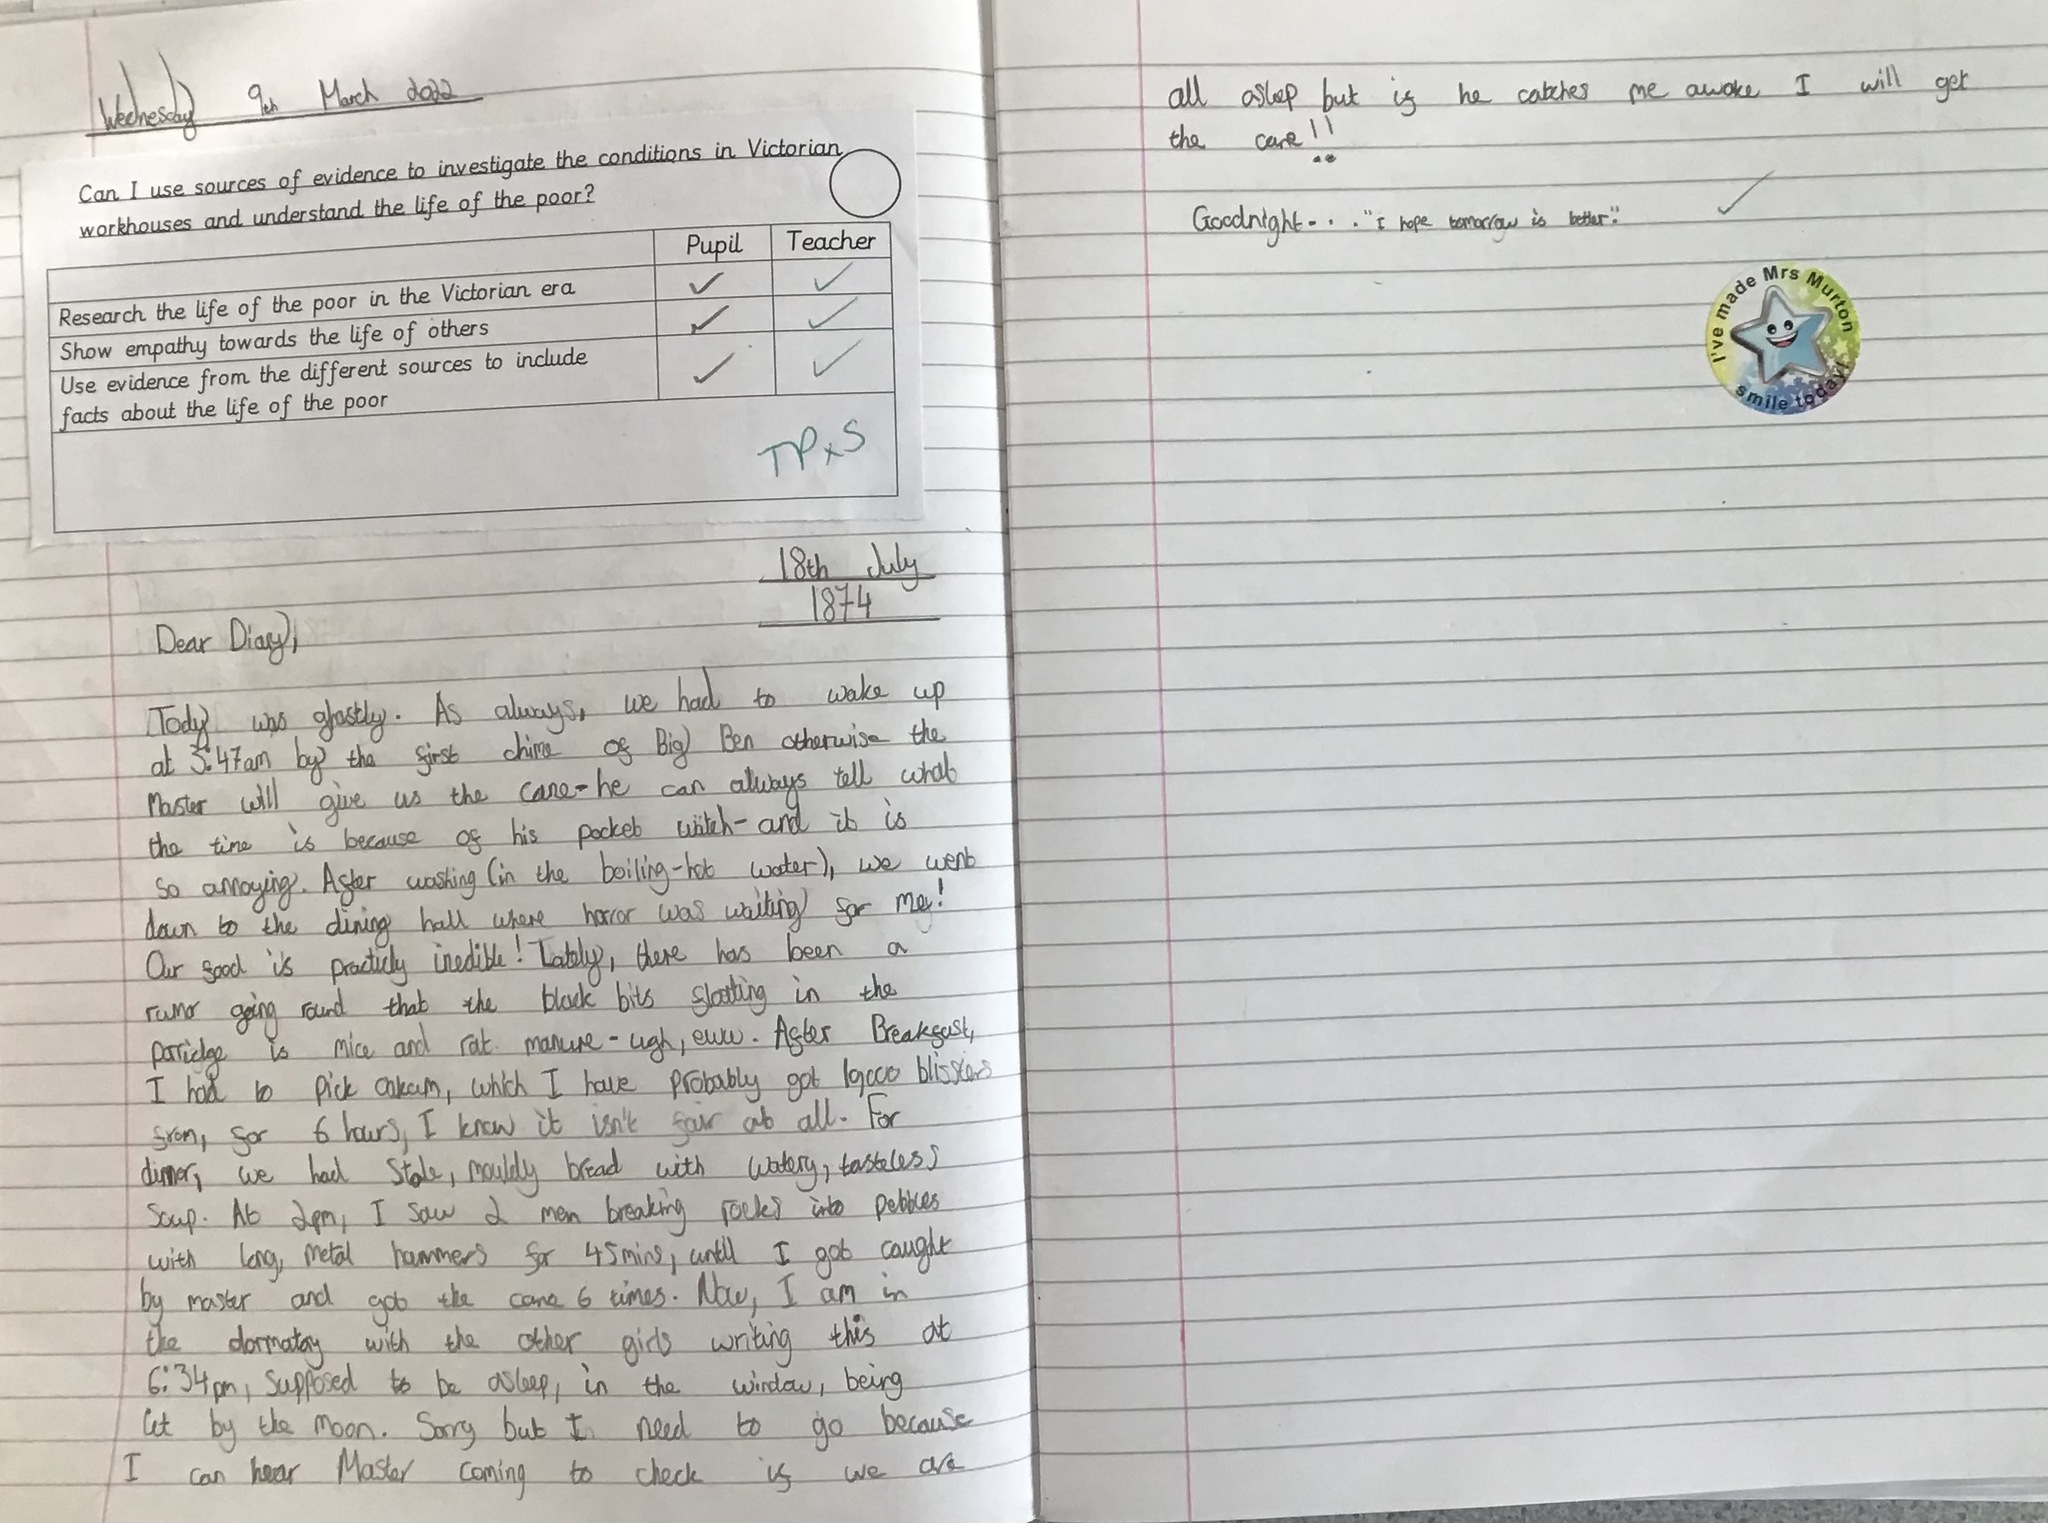 Wednesday 9th March 2022
Can I use sources of evidence to investigate the conditions in Victorian
workhouses and understand the life of the poor?
Pupil Teacher
Research the life of the poor in the Victorian era ✓ ✓
Show empathy towards the life of others ✓ ✓
Use evidence from the different sources to include ✓ ✓
facts about the life of the poor
TPxS
18th July
1874
Dear Diary,
Tody was ghastly. As always, we had to wake up
at 5:47am by the first chime of Big Ben otherwise the
Master will give us the cane-he can always tell what
the time is because of his pocket watch-and it is
so annoying. After washing (in the boiling-hot water), we went
down to the dining hall where horror was waiting for me!
Our food is practicly inedible! Lately, there has been a
rumor going round that the black bits floating in the
porridge is mice and rat manure-ugh, eww. After Breakfast,
I had to pick oakum, which I have probably got 19000 blissters
from, for 6 hours, I know it isn't fair at all. For
dinner, we had stale, mouldy bread with watery, tasteless
soup. At 2pm, I saw 2 men breaking rocks into pebbles
with long, metal hammers for 45mins, until I got caught
by master and got the cane 6 times. Now, I am in
the dormatory with the other girls writing this at
6:34pm, supposed to be asleep, in the window, being
let by the moon. Sorry but I need to go because
I can hear Master coming to check if we are
all asleep but if he catches me awake I will get
the cane!!
Goodnight... "I hope tomorrow is better".
✓
I've made Mrs Murton
smile today!